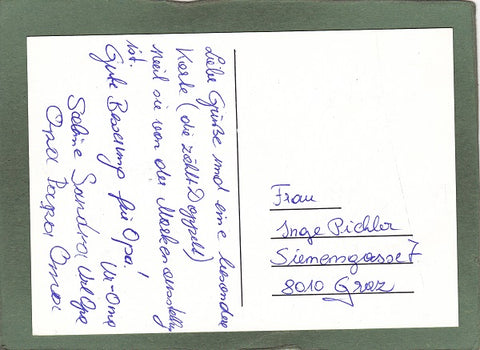 Liebe Grüße und eine besondere
Karte (die zählt Doppelt)
weil sie von der Markenausstellung
ist.
Gute Besserung für Opa!
Ur-Oma
Sabine Sandra Ur Opa
Opa Papa Oma
Frau
Inge Pichler
Siemensgasse 7
8010 Graz